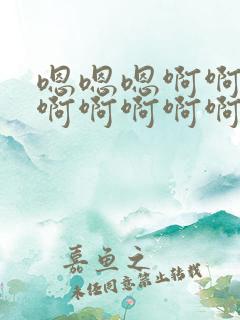 嗯嗯嗯啊啊
啊啊啊啊啊
嘉鱼之
未经同意禁止转载